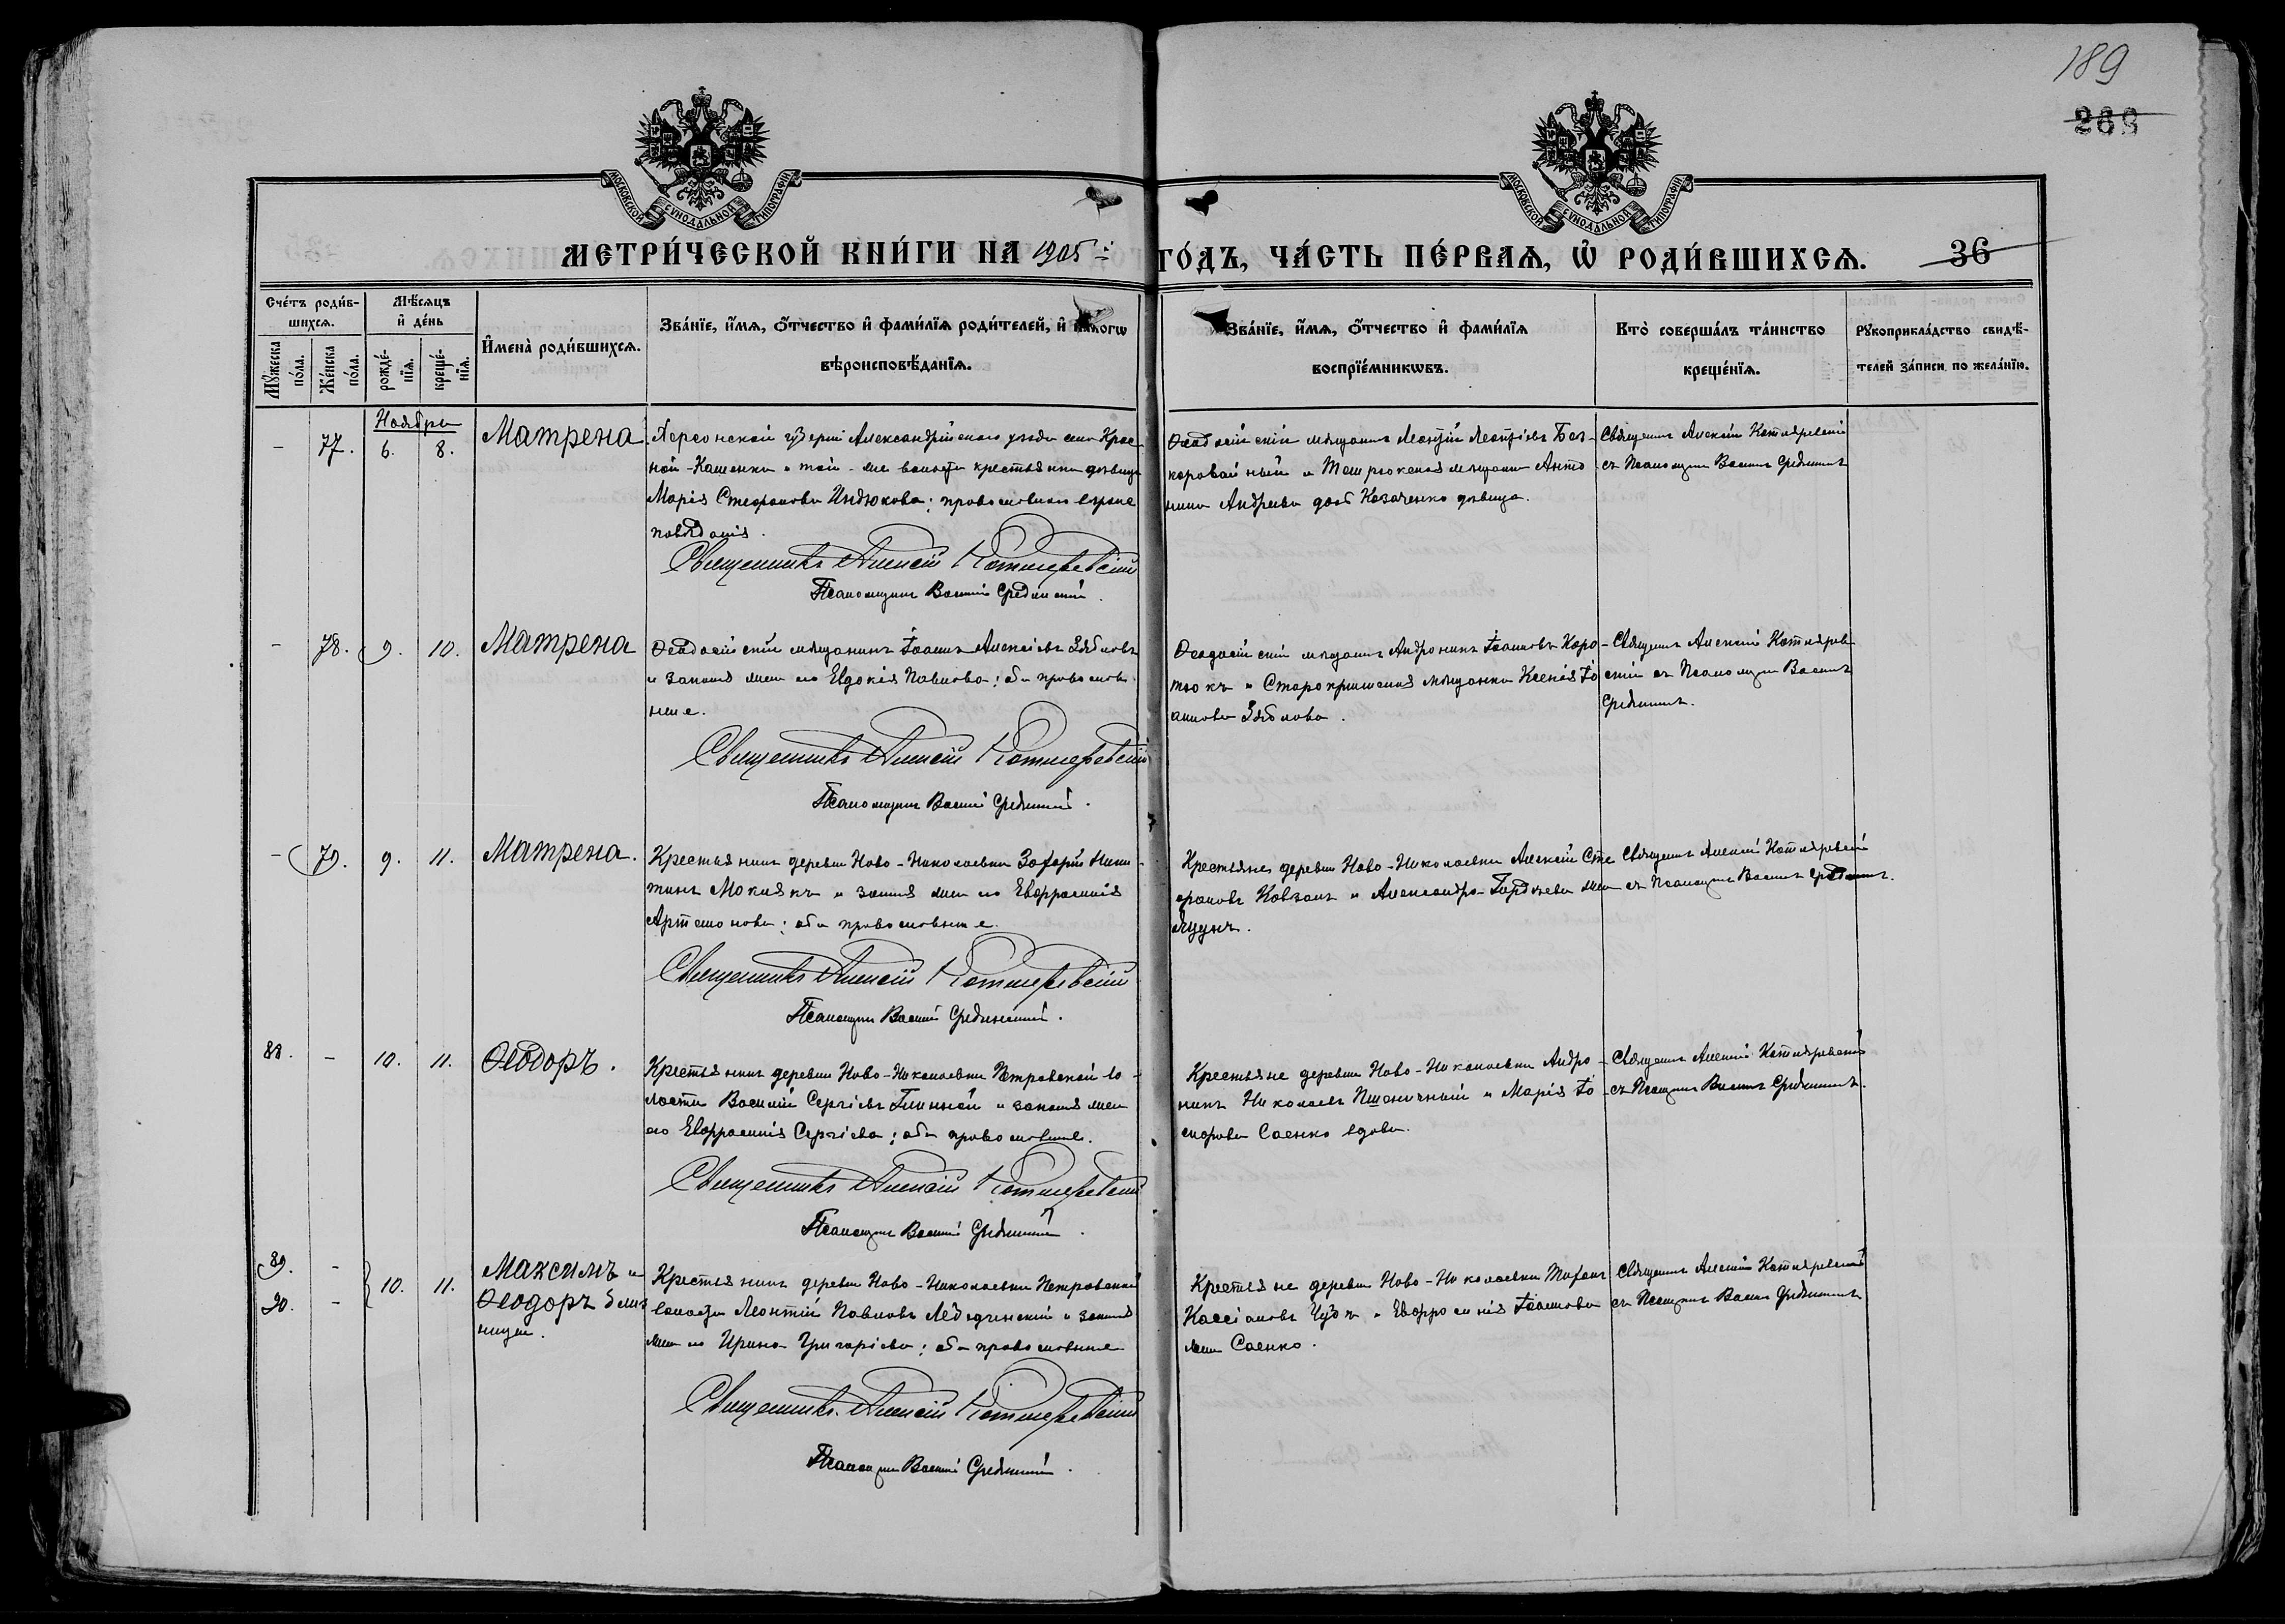 189
268
МОСКОВСКОЙ СУНОДАЛЬНОЙ ТИПОГРАФІИ
МОСКОВСКОЙ СУНОДАЛЬНОЙ ТИПОГРАФІИ
МЕТРИ́ЧЕСКОЙ КНИ́ГИ НА 1905 ГО́ДЪ, ЧА́СТЬ ПЕ́РВАѦ, Ѡ҆ РОДИ́ВШИХСѦ. 36
Сче́тъ роди́в-
шихсѧ.
Мꙋ́жеска по́ла.
Же́нска по́ла.
Мѣ́сѧцъ
и҆ де́нь
рожде́-
нїѧ.
креще́-
нїѧ.
И҆мена̀ роди́вшихсѧ.
Зва́нїе, и҆́мѧ, ѻ҆́тчество и҆ фами́лїѧ роди́телей, и҆ како́гѡ
вѣроисповѣ́данїѧ.
Зва́нїе, и҆́мѧ, ѻ҆́тчество и҆ фами́лїѧ
воспрїе́мникѡвъ.
Кто̀ соверша́лъ та́инство
креще́нїѧ.
Рꙋкоприкла́дство свидѣ́-
телей за́писи по жела́нїю.
Ноября
- 77. 6. 8. Матрена
Херсонской губерніи Александрійскаго уѣзда села Крас
ной-Каменки и той-же волости крестьянка дѣвица
Марія Стефанова Индюкова; православнаго вѣроис
повѣданія.
Священникъ Алексій Котляревскій
Псаломщикъ Василій Срединскій.
Ѳеодосійскій мѣщанинъ Леонтій Леонтіевъ Без-
коровайный и Темрюкская мѣщанка Анто
нина Андреева доч Козаченко дѣвица.
Священникъ Алексій Котляревскій
съ Псаломщик Василіемъ Срединскимъ
- 78. 9. 10. Матрена
Ѳеодосійскій мѣщанинъ Іоаннъ Алексіевъ Зябловъ
и законная жена его Евдокія Павлова; оба православ
ные.
Священникъ Алексій Котляревскій
Псаломщикъ Василій Срединскій.
Ѳеодосійскій мѣщанинъ Андроникъ Іоанновъ Коро-
ткокъ и Старокрымская мѣщанка Ксенія Іо
аннова Зяблова.
Священникъ Алексій Котлярев
скій съ Псаломщик Василіемъ
Срединскимъ.
- 79. 9. 11. Матрена.
Крестьянинъ деревни Ново-Николаевки Захарій Ники-
тинъ Мокіякъ и законная жена его Евфросинія
Артемонова; оба православные.
Священникъ Алексій Котляревскій
Псаломщикъ Василій Срединскій.
Крестьяне деревни Ново-Николаевки Алексій Сте
фановъ Ковзанъ и Александра Гордѣева жена
Священникъ Алексій Котляревскій
съ Псаломщик Василіемъ Срединскимъ.
88. - 10. 11. Ѳеодоръ.
Крестьянинъ деревни Ново-Николаевки Петровской во-
лости Василій Сергіевъ Глинной и законная жена
его Евфросинія Сергіева; оба православные.
Священникъ Алексій Котляревскій
Псаломщикъ Василій Срединскій.
Крестьяне деревни Ново-Николаевки Андро-
никъ Николаевъ Пшеничный и Марія Іо
сифова Саенко вдова.
Священникъ Алексій Котляревскій
съ Псаломщик Василіемъ Срединскимъ.
89. -
90. - 10. 11. Максимъ и
Ѳеодоръ близ
нецы.
Крестьянинъ деревни Ново-Николаевки Петровской
волости Леонтій Павловъ Лебединскій и законная
жена его Ирина Григоріева; оба православные
Священникъ Алексій Котляревскій
Псаломщикъ Василій Срединскій.
Крестьяне деревни Ново-Николаевки Тихонъ
Кассіановъ Чубъ и Евфросинія Іоаннова
жена Саенко.
Священникъ Алексій Котляревскій
съ Псаломщик Василіемъ Срединскимъ